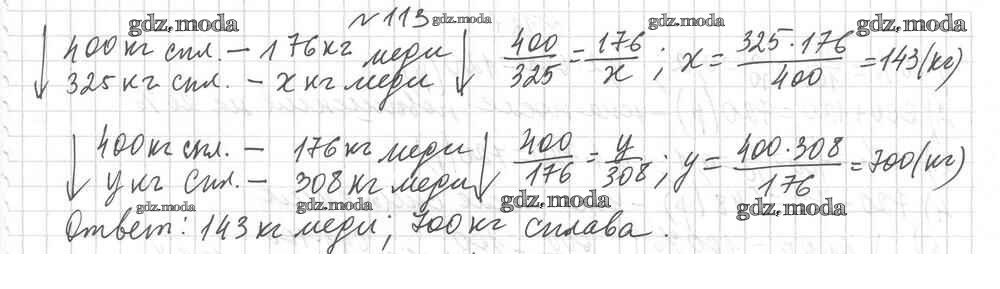 № 113
400 кг спл. – 176 кг меди 400/325 = 176/x ; x = 325·176/400 = 143 (кг)
325 кг спл. – x кг меди
400 кг спл. – 176 кг меди 400/176 = y/308 ; y = 400·308/176 = 700 (кг)
y кг спл. – 308 кг меди
Ответ: 143 кг меди; 700 кг сплава.
gdz.moda
gdz.moda
gdz.moda
gdz.moda
gdz.moda
gdz.moda
gdz.moda
gdz.moda